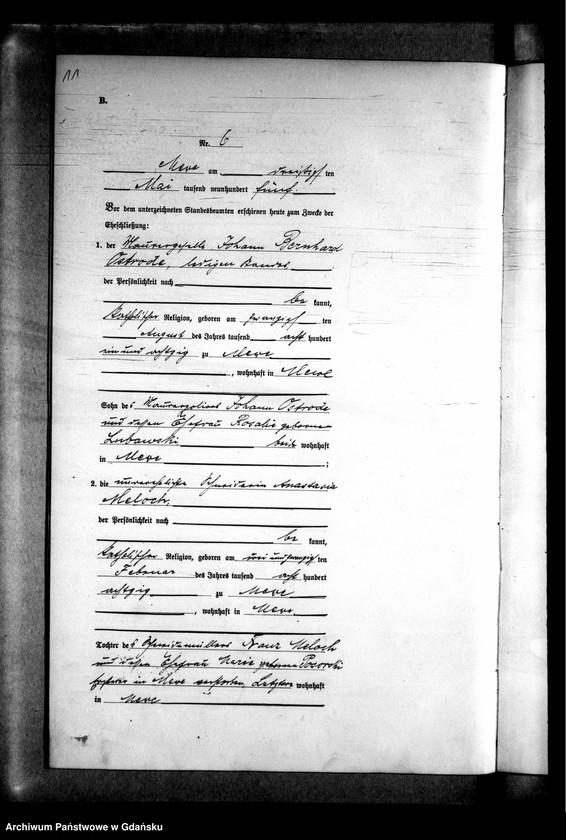 11
B.
Nr. 6
Mewe am dreißigsten
Mai tausend neunhundert fünf.
Vor dem unterzeichneten Standesbeamten erschienen heute zum Zwecke der
Eheschließung:
1. der Maurergeselle Johann Bernhard
Ostrode, ledigen Standes,
der Persönlichkeit nach
be kannt,
katholischer Religion, geboren am zwanzigsten
August des Jahres tausend acht hundert
ein und achtzig zu Mewe
, wohnhaft in Mewe
Sohn des Johann Ostrode
und dessen Ehefrau Rosalie geborenen
Lubawski beide wohnhaft
in Mewe ;
2. die unverehelichte Schneiderin Anastasia
Meloch,
der Persönlichkeit nach
be kannt,
katholischer Religion, geboren am drei und zwanzigsten
Februar des Jahres tausend acht hundert
achtzig zu Mewe
, wohnhaft in Mewe.
Tochter des Schneidemüllers Franz Meloch
und dessen Ehefrau Marie geborenen
ersterer in Mewe verstorben, Letztere wohnhaft
in Mewe
Archiwum Państwowe w Gdańsku